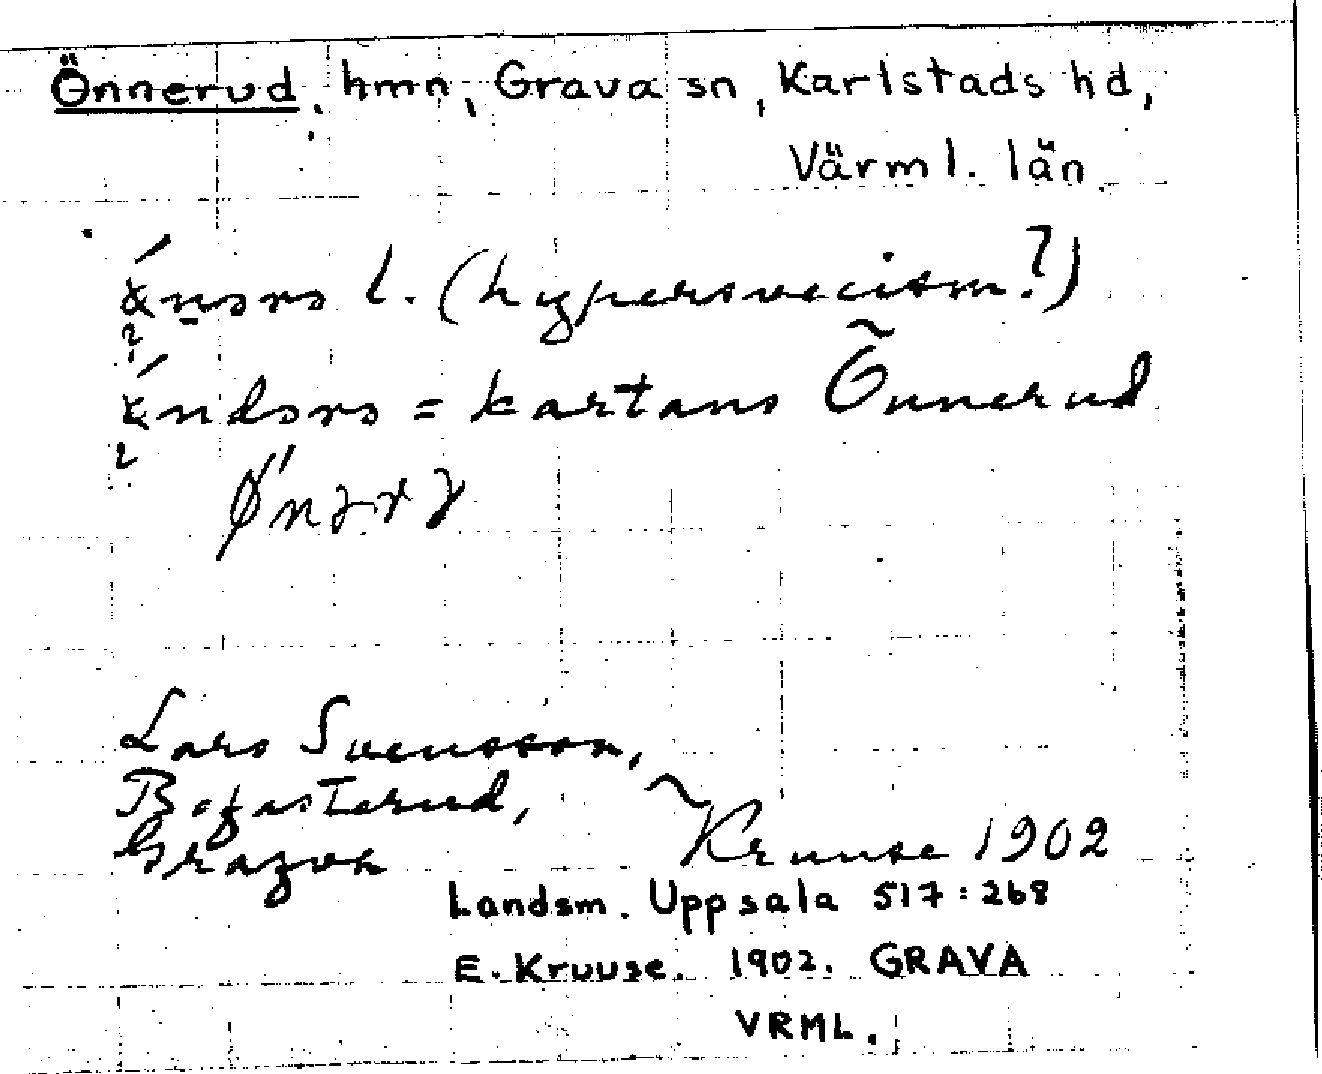 Önnerud, hmn, Grava sn, Karlstads hd,
Värml. län
l. (hypersvecism?)
= kartans Önnerud
Lars Svensson,
Befasterud,
Grafva
Kruuse 1902
Landsm. Uppsala 517:268
E. Kruuse. 1902. GRAVA
VRML.